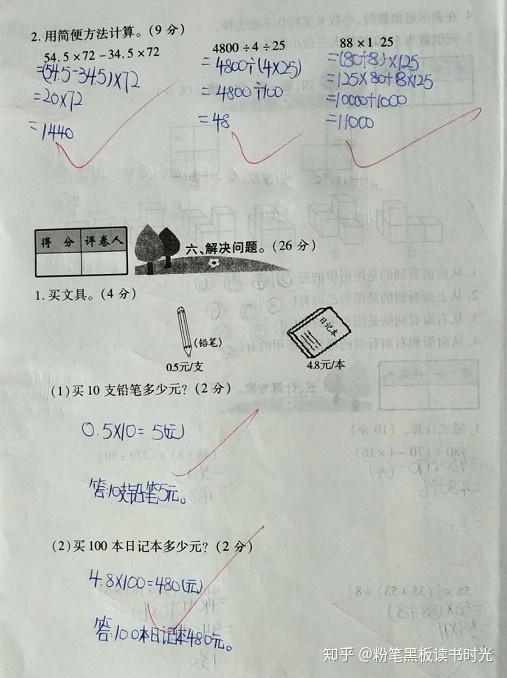 2. 用简便方法计算。(9 分)
54.5×72-34.5×72 4800÷4÷25 88×1 25
=(54.5-34.5)×72 =4800÷(4×25) =(80+8)×125
=20×72 =4800÷100 =125×80+8×125
=1440 =48 =10000+1000
=11000
得 分 评卷人
六、解决问题。(26 分)
1. 买文具。(4 分)
(铅笔) 日记本
0.5元/支 4.8元/本
(1)买 10 支铅笔多少元?(2 分)
0.5×10=5(元)
答:10支铅笔5元。
(2)买 100 本日记本多少元?(2 分)
4.8×100=480(元)
答:100本日记本480元。
知乎 @粉笔黑板读书时光